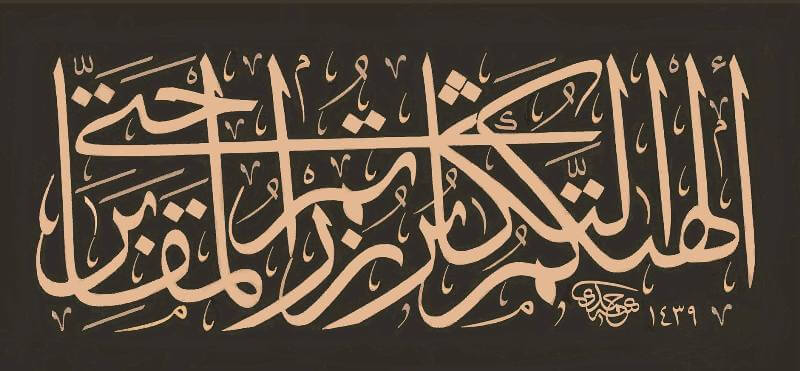 ألهىكم التكاثر حتى زرتم المقابر
١٤٣٩